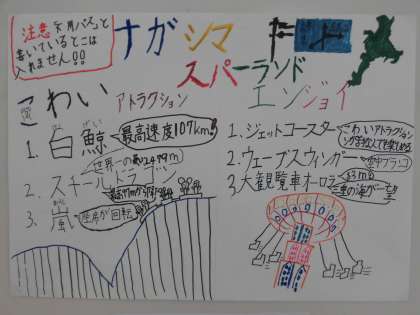 注意
書いているとこは
入れません!!
ナガシマ
スパーランド
こわい
アトラクション
1. 白鯨
最高速度107km!
2. スチールドラゴン
世界一の長2479m
3. 嵐
座席が回転
エンジョイ
1. ジェットコースター
こわいアトラク
2. ウェーブスウィンガー
空中ブランコ
3. 大観覧車オーロラ
の海が一望